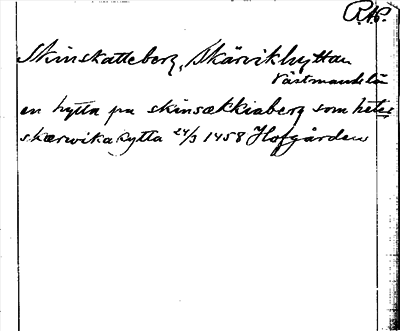 R.A.P.
Skinskatteberg, Skärvikhyttan
Västmands län
en hytta pa skinsækkiaberg som heter
skærwika hytta 24/3 1458 Hofgården